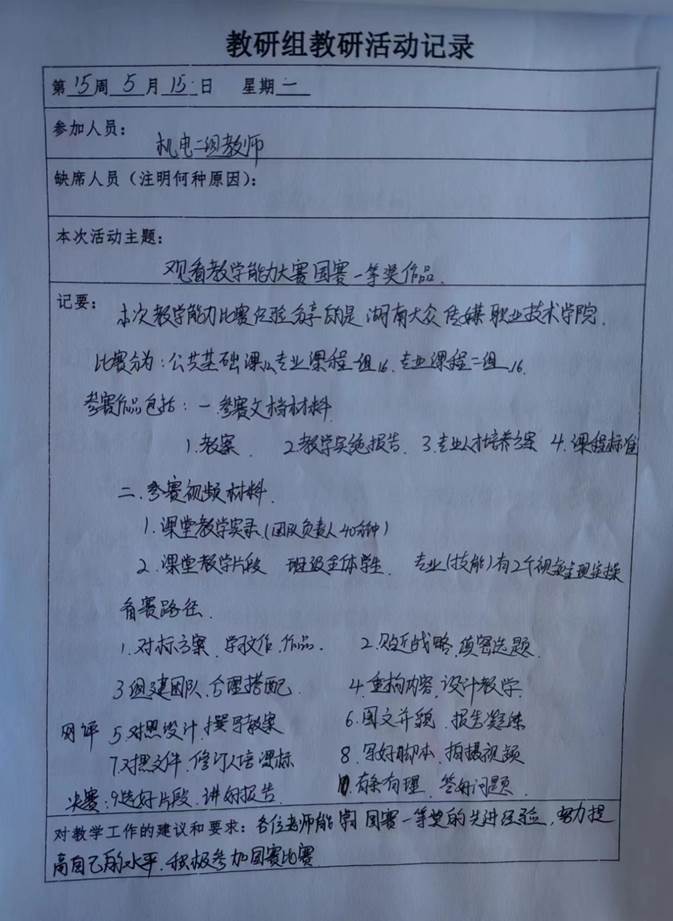 教研组教研活动记录
第 15 周 5 月 15 日 星期 一
参加人员:
机电二组教师
缺席人员(注明何种原因):
本次活动主题:
观看教学能力大赛国赛一等奖作品.
记要:
本次教学能力比赛经验分享的是 湖南大众传媒职业技术学院.
比赛分为:公共基础课 专业课程一组16. 专业课程二组16.
参赛作品包括:一.参赛文档材料
1.教案. 2.教学实施报告. 3.专业人才培养方案 4.课程标准
二.参赛视频材料.
1.课堂教学实录(团队负责人40分钟)
2.课堂教学片段 班级全体学生. 专业(技能)有2个视频 实操
备赛路径.
1.对标方案.学 作品. 2.贴近战略.慎密选题.
3组建团队.合理搭配. 4.重构内容.设计教学.
网评 5对照设计,撰写教案 6.图文并貌.报告凝练
7.对照文件.修订人培课标 8.写好脚本.拍摄视频
决赛:9选好片段.讲好报告. 10.有条有理.答好问题.
对教学工作的建议和要求: 各位老师能 国赛一等奖的先进经验,努力提
高自己的水平.积极参加国赛比赛